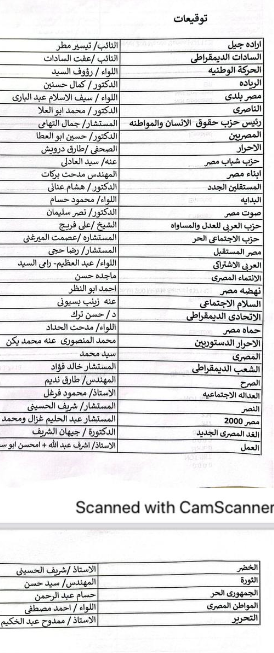 توقيعات
اراده جيل النائب/ تيسير مطر
السادات الديمقراطى النائب /عفت السادات
الحركة الوطنيه اللواء / رؤوف السيد
الرياده الدكتور / كمال حسنين
مصر بلدى اللواء / سيف الاسلام عبد البارى
الناصرى الدكتور/ محمد ابو العلا
رئيس حزب حقوق الانسان والمواطنه المستشار/ جمال التهامى
المصريين الدكتور/ حسين ابو العطا
الاحرار الصحفى /طارق درويش
حزب شباب مصر عنه/ سيد العادلى
ابناء مصر المهندس مدحت بركات
المستقلين الجدد الدكتور / هشام عنانى
البدايه اللواء/ محمود حسام
صوت مصر الدكتور/ نصر سليمان
حزب العربى للعدل والمساواه الشيخ /على فريج
حزب الاجتماعى الحر المستشاره /عصمت الميرغنى
مصر المستقبل المستشار/ رضا حجى
العربى الاشتراكى اللواء/ عبد العظيم- رامى السيد
الانتماء المصرى ماجده حسن
نهضه مصر احمد ابو النظر
السلام الاجتماعى عنه زينب بسيونى
الاتحادى الديمقراطى د / حسن ترك
حماه مصر اللواء/ مدحت الحداد
الاحرار الدستوريين محمد المنصورى عنه محمد يكن
المصرى سيد محمد
الشعب الديمقراطى المستشار خالد فؤاد
الصرح المهندس/ طارق نديم
العداله الاجتماعيه الاستاذ/ محمود فرغل
النصر المستشار/ شريف الحسينى
مصر 2000 المستشار عبد الحليم غزال ومحمد
الغد المصرى الجديد الدكتورة / جيهان الشريف
العمل الاستاذ/ اشرف عبد الله + امحسن ابو
Scanned with CamScanner
الخضر الاستاذ /شريف الحسينى
الثورة المهندس/ سيد حسن
الجمهورى الحر حسام عبد الرحمن
المواطن المصرى اللواء / احمد مصطفى
التحرير الاستاذ / ممدوح عبد الحكيم